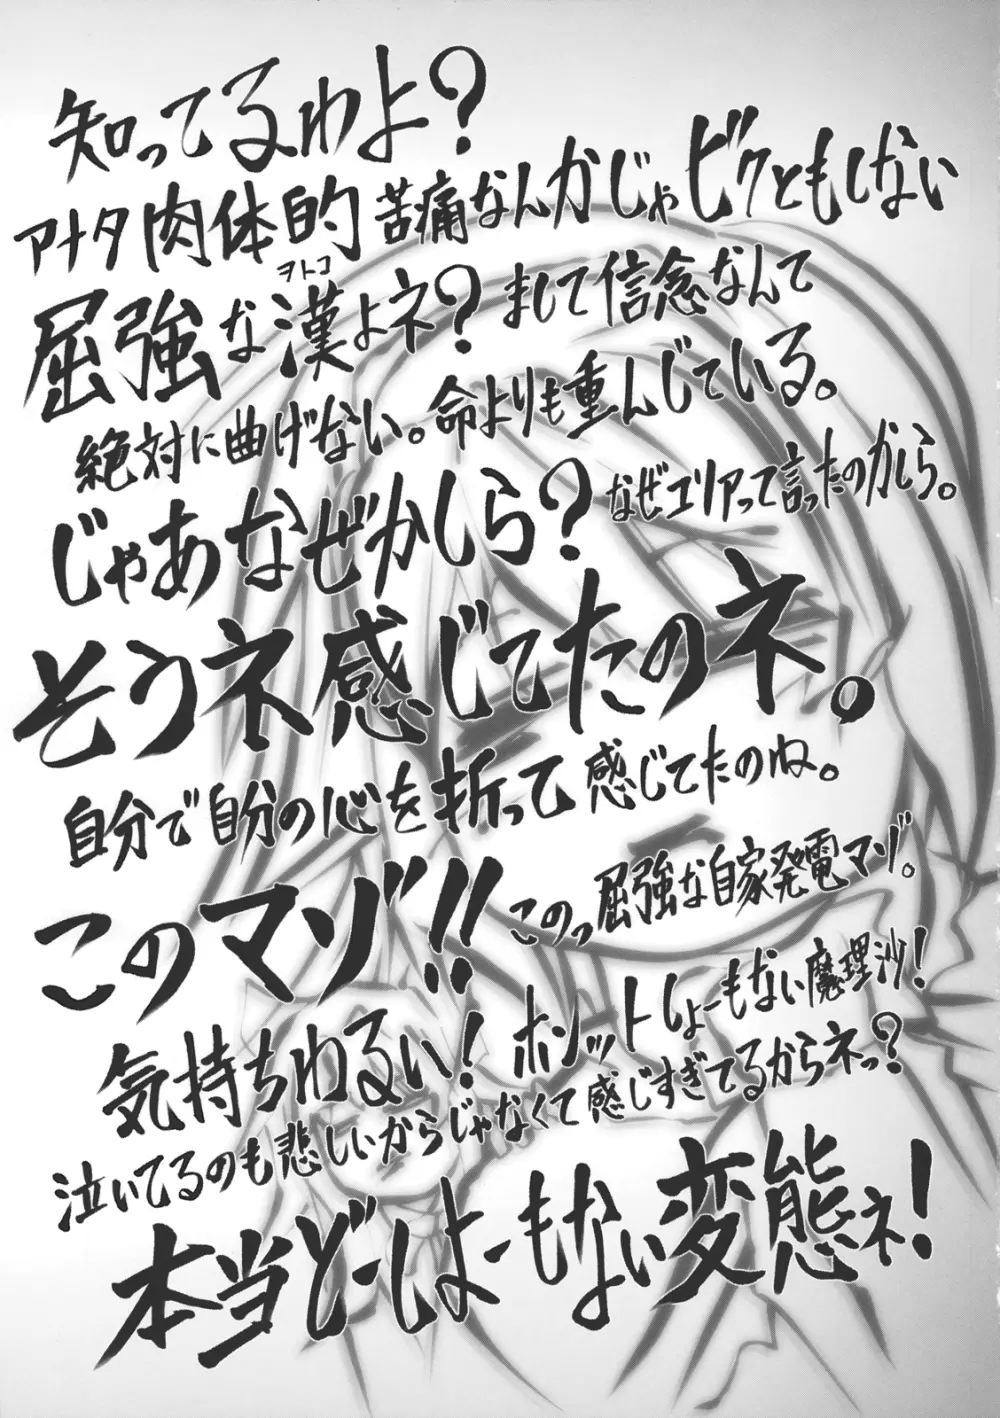 知ってるわよ?
アナタ肉体的苦痛なんかじゃビクともしない
屈強な漢よネ?まして信念なんて
ヲトコ
絶対に曲げない。命よりも重んじている。
じゃあなぜかしら?なぜユリアって言ったのかしら。
そうネ感じてたのネ。
自分で自分の心を折って感じてたのね。
このマゾ!!このっ屈強な自家発電マゾ。
気持ちわるい!ホンットしょーもない魔理沙!
泣いてるのも悲しいからじゃなくて感じすぎてるからネっ?
本当どーしよーもない変態ネ!